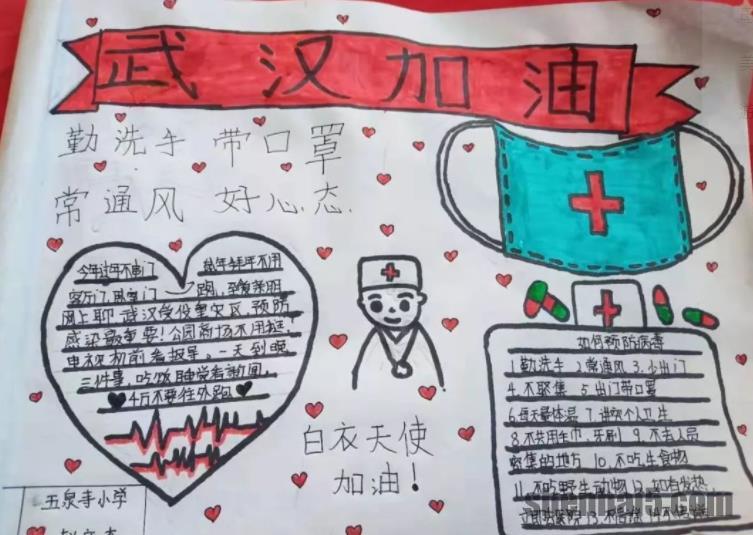 武汉加油
勤洗手 带口罩
常通风 好心态
今年过年不串门
网上聊 武汉受役重灾区, 预防
感染最重要! 公园商场不用挺,
电视机前看报导。一天到晚
三件事, 吃饭睡觉看新闻,
千万不要往外跑
白衣天使
加油!
如何预防病毒
1 勤洗手 2 常通风 3. 少出门
4. 不聚集 5 出门带口罩
6. 每天量体温 7. 讲究个人卫生
8 不共用毛巾、牙刷 9. 不去人员
密集的地方 10. 不吃生食物
11. 不吃野生动物 12. 如有发热,
五泉寺小学